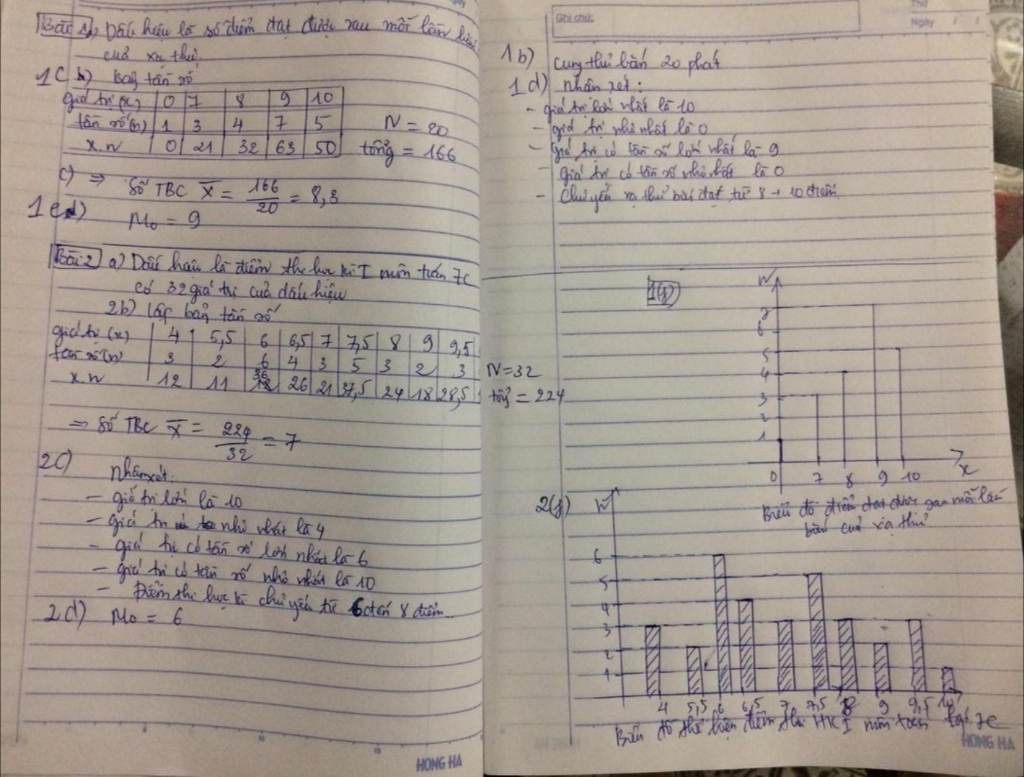 Bài 1) Dấu hiệu là số điểm đạt được sau mỗi lần bắn
của xạ thủ.
1C b) Bảng tần số
giá trị (x) 0 7 8 9 10
tần số (n) 1 3 4 7 5 N = 20
x.n 0 21 32 63 50 tổng = 166
c) ⇒ Số TBC X̄ = 166/20 = 8,3
1e d) M₀ = 9
Bài 2 a) Dấu hiệu là điểm thi học kì I môn toán 7C
có 32 giá trị của dấu hiệu
2b) Lập bảng tần số
giá trị (x) 4 5,5 6 6,5 7 7,5 8 9 9,5
tần số (n) 3 2 6 4 3 5 3 2 3 N = 32
x.n 12 11 36 26 21 37,5 24 18 28,5 tổng = 224
⇒ Số TBC X̄ = 224/32 = 7
2C) Nhận xét:
- giá trị lớn là 10
- giá trị nhỏ nhất là 4
- giá trị có tần số lớn nhất là 6
- giá trị có tần số nhỏ nhất là 10
- Điểm thi học kì chủ yếu từ 6 đến 8 điểm
2d) M₀ = 6
HONG HA
Ghi chú:
Thứ
Ngày / /
1b) cung thủ bắn 20 phát
1d) Nhận xét:
- giá trị lớn nhất là 10
- giá trị nhỏ nhất là 0
- giá trị có tần số lớn nhất là 9
- giá trị có tần số nhỏ nhất là 0
- Chủ yếu xạ thủ bắn đạt từ 8 → 10 điểm
1(g)
N
7
6
5
4
3
2
1
0 7 8 9 10 x
Biểu đồ điểm đạt được sau mỗi lần
bắn của xạ thủ
2(g) N
6
5
4
3
2
1
4 5,5 6 6,5 7 7,5 8 9 9,5 10
Biểu đồ thể hiện điểm thi HK I môn toán lớp 7C
HONG HA